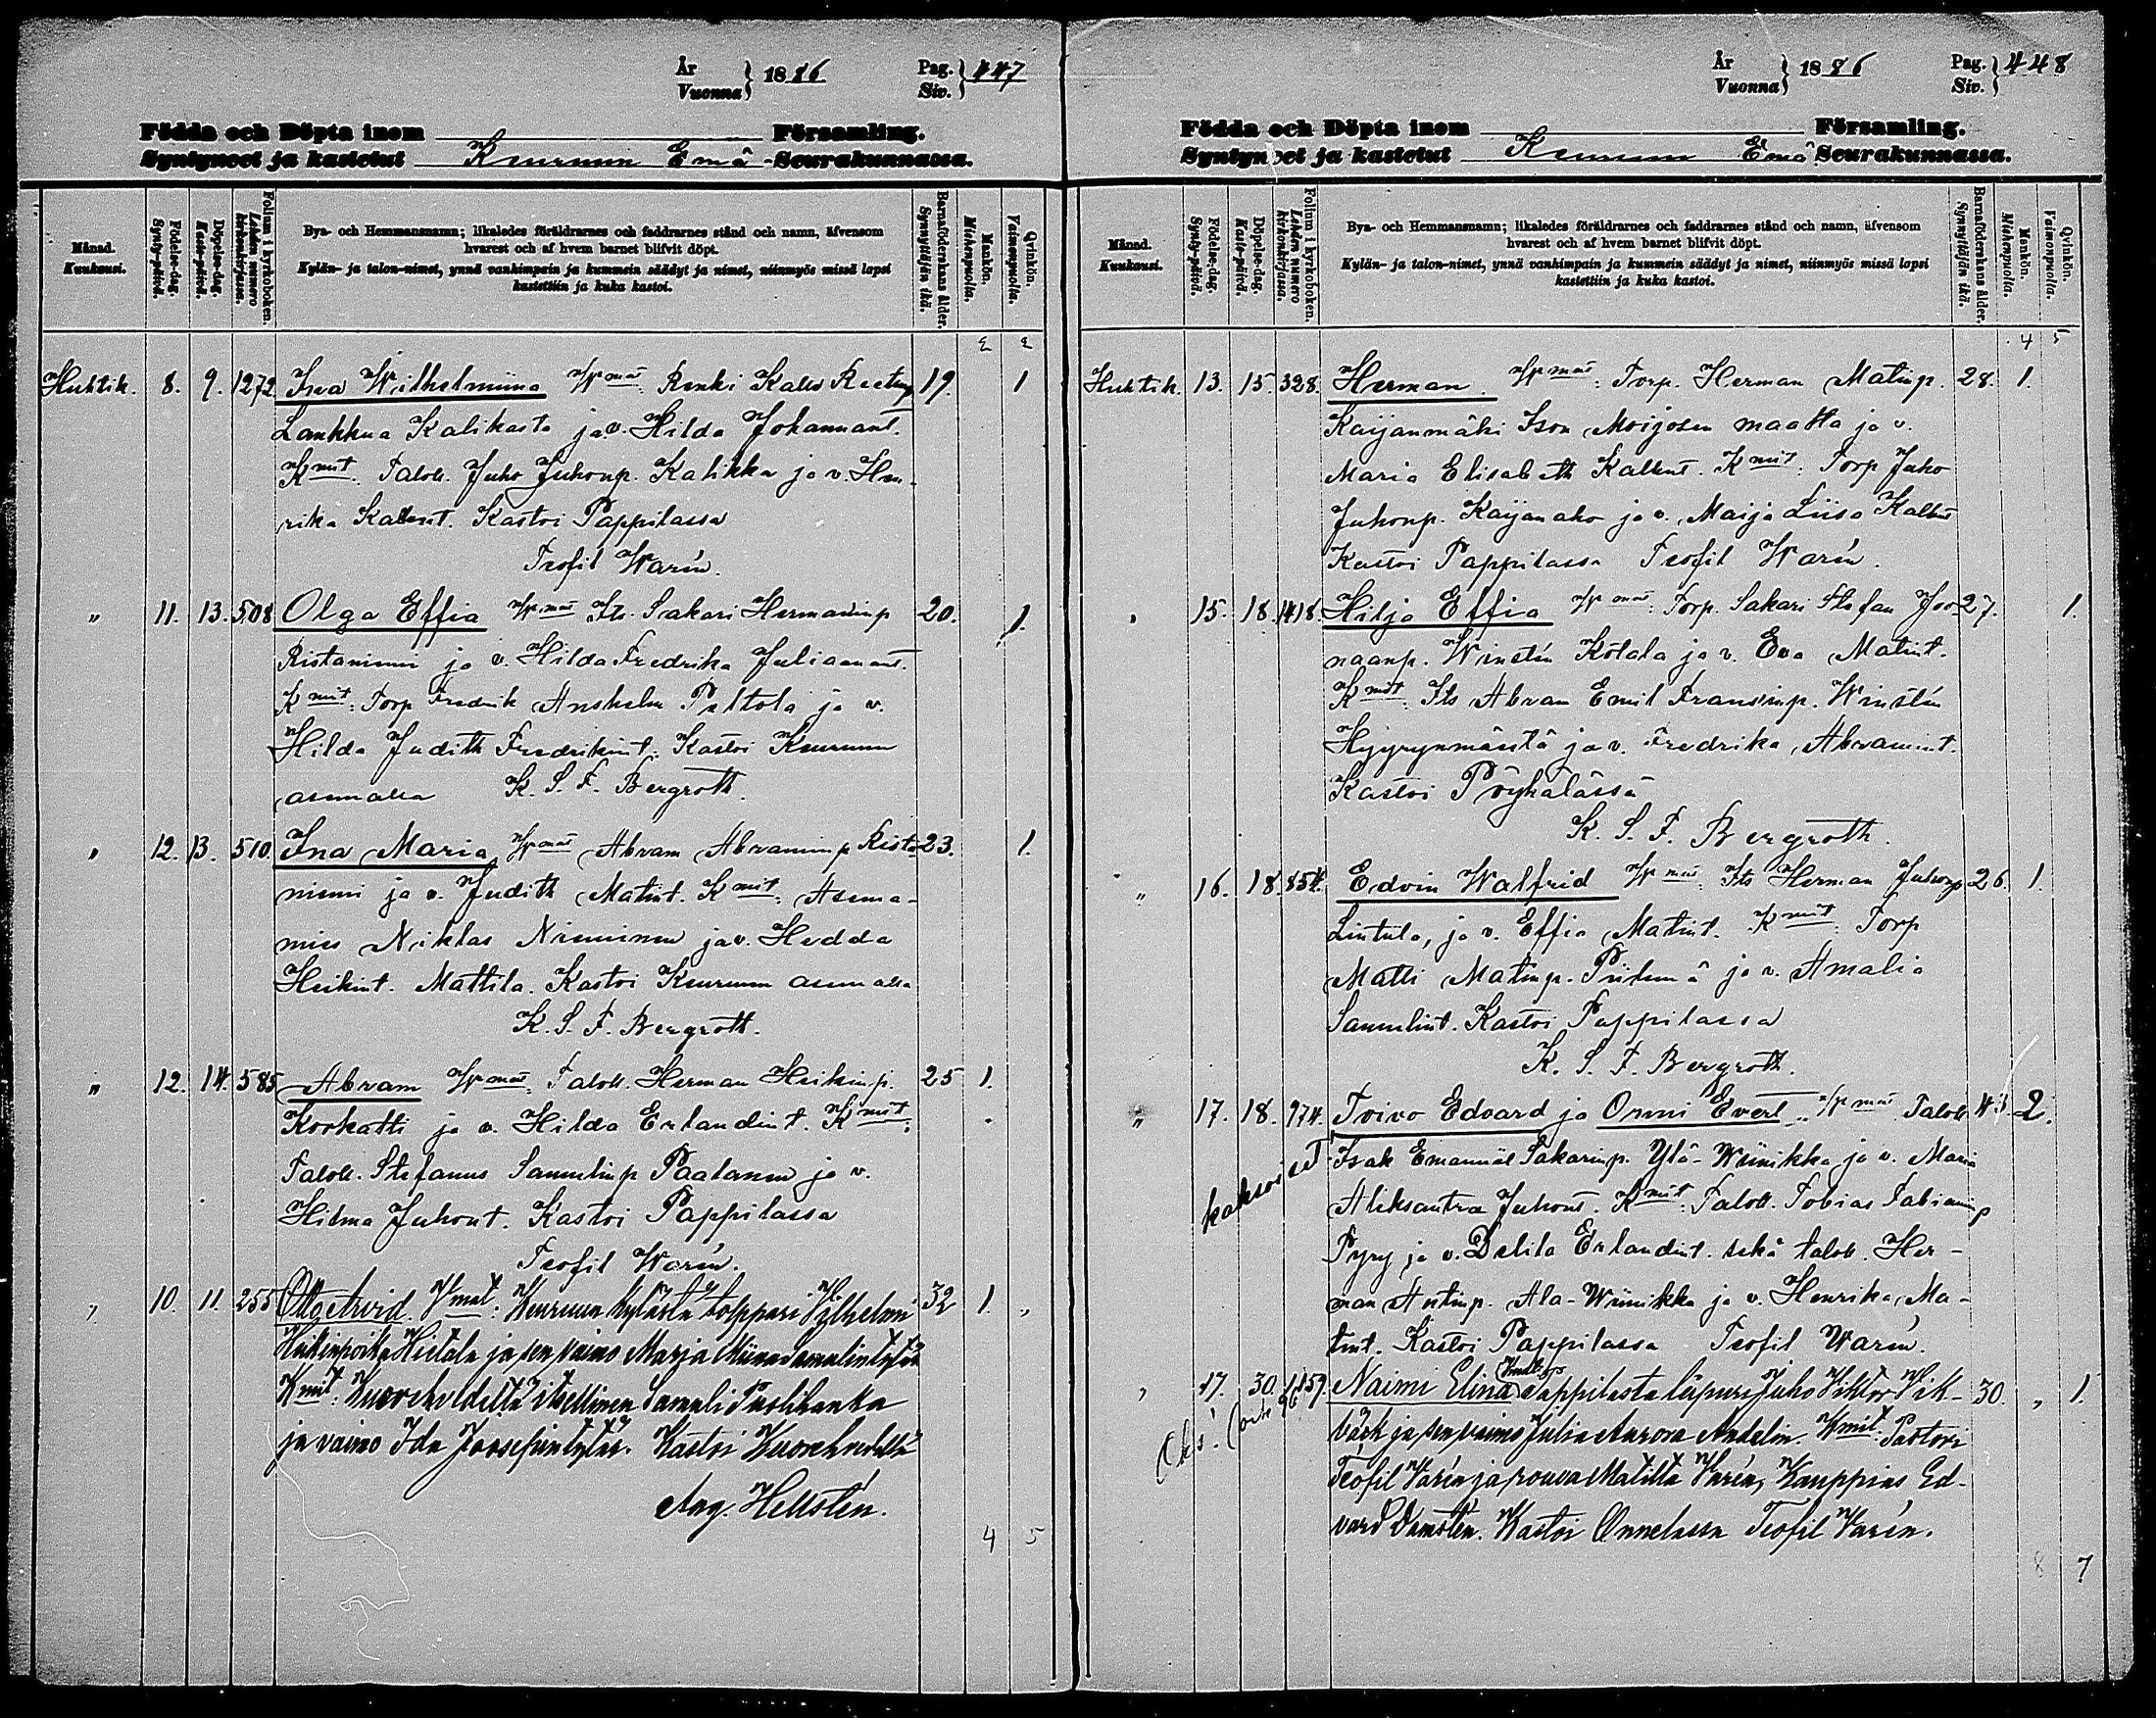 År
Vuonna } 1886
Pag.
Siv. } 447
Födda och Döpta inom Församling.
Syntyneet ja kastetut Keuruun Emä-Seurakunnassa.
Månad.
Kuukausi.
Födelse-dag.
Synty-päivä.
Döpelse-dag.
Kaste-päivä.
Folium i kyrkoboken.
Lehden numero kirkonkirjassa.
Bya- och Hemmansnamn; likaledes föräldrarnes och faddrarnes stånd och namn, äfvensom
hvarest och af hvem barnet blifvit döpt.
Kylän- ja talon-nimet, ynnä vanhimpain ja kummein säädyt ja nimet, niinmyös missä lapsi
kastettiin ja kuka kastoi.
Barnaföderskans ålder.
Synnyttäjän ikä.
Mankön.
Miehenpuolta.
Qvinkön.
Vaimonpuolta.
Huhtik. 8. 9. 1272 Iida Wilhelmiina Renki Kalle 19. 1
Kalikasta ja v. Hilda Johannant.
Kmit. Taloll. Juho Juhonp. Kalikka ja v. Hen-
rika Kallent. Kastoi Pappilassa
Teofil Warén.
" 11. 13. 508 Olga Effia Its. Sakari Hermanninp 20. 1.
Ristaniemi ja v. Hilda Fredrika Juliaanant.
Kmit: Torp Fredrik Anshelm Peltola ja v.
Hilda Judith Fredrikint. Kastoi Keuruun
asemalla K. S. F. Bergroth.
" 12. 13. 510. Ina Maria Abram Abraminp Rista- 23. 1.
niemi ja v. Judith Matint. Kmit: Asema-
mies Niklas Nieminen ja v. Hedda
Heikint. Mattila. Kastoi Keuruun asemalla
K. S. F. Bergroth.
" 12. 14. 585 Abram Taloll. Herman Heikinp. 25 1.
Korkatti ja v. Hilda Erlandint. Kmit:
Taloll. Stefanus Samulinp Paalanen ja v.
Hilma Juhont. Kastoi Pappilassa
Teofil Warén.
" 10. 11. 255 Otto Arvid. Vmat: Keuruun kylästä torppari Vilhelmi 32 1. "
Heikinpoika Hietala ja sen vaimo Marja Miina Samulintytär
Kmit: Kuorehvedeltä itsellinen Samuli Puolihanka
ja vaimo Ida Joosepintytär. Kastoi Kuorehvedellä
Aug. Hellstén.
4 5
År
Vuonna } 1886
Pag.
Siv. } 448
Födda och Döpta inom Församling.
Syntyneet ja kastetut Keuruun Emä Seurakunnassa.
Månad.
Kuukausi.
Födelse-dag.
Synty-päivä.
Döpelse-dag.
Kaste-päivä.
Folium i kyrkoboken.
Lehden numero kirkonkirjassa.
Bya- och Hemmansnamn; likaledes föräldrarnes och faddrarnes stånd och namn, äfvensom
hvarest och af hvem barnet blifvit döpt.
Kylän- ja talon-nimet, ynnä vanhimpain ja kummein säädyt ja nimet, niinmyös missä lapsi
kastettiin ja kuka kastoi.
Barnaföderskans ålder.
Synnyttäjän ikä.
Mankön.
Miehenpuolta.
Qvinkön.
Vaimonpuolta.
4 5
Huhtik. 13. 15. 328. Herman. Torp. Herman Matinp. 28. 1.
Kaijanmäki Ison Moijosen maalta ja v.
Maria Elisabeth Kallent. Kmit: Torp Juho
Juhonp. Kaijanaho ja v. Maija Liisa Kallent
Kastoi Pappilassa Teofil Warén.
" 15. 18. 1418. Hilja Effia Torp. Sakari Stefan Joo- 27. 1.
naanp. Winstén Kotala ja v. Eva Matint.
Kmit. Its Abram Emil Fransinp. Winstén
ja v. Fredrika Abramint.
Kastoi Pöyhälässä
K. S. F. Bergroth.
" 16. 18. 854. Edvin Walfrid Its Herman Juhonp 26. 1.
Lintula, ja v. Effia Matint. Kmit: Torp
Matti Matinp. ja v. Amalia
Samulint. Kastoi Pappilassa
K. S. F. Bergroth.
" 17. 18. 974. Toivo Edvard ja Onni Evert. Taloll 43 2.
kaksoiset
Isak Emanuel Sakarinp. Ylä-Wiinikka ja v. Maria
Aleksantra Juhont. Kmit: Taloll. Tobias Fabianinp
Pyry ja v. Delila Erlandint. sekä taloll. Her-
man Antinp. Ala-Wiinikka ja v. Henrika Ma-
tint. Kastoi Pappilassa Teofil Warén.
" 17. 30. 1159. Naimi Elina Vmat: Pappilasta läpuri Juho Viktor Vik- 30. " 1.
bäck ja sen vaimo Julia Aurora Andelin. Kmit. Pastori
Teofil Varén ja rouva Matilta Varén, Kauppias Ed-
vard Damstén. Kastoi Onnelassa Teofil Varén.
8 7